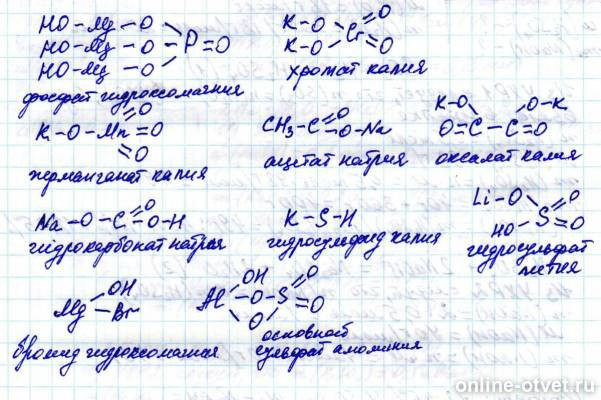 HO-Mg-O
HO-Mg-O P=O
HO-Mg-O
фосфат гидроксомагния
K-O O
K-O Cr O
хромат калия
K-O-Mn=O
O
O
перманганат калия
CH3-C=O
O-Na
ацетат натрия
K-O O-K
O=C-C=O
оксалат калия
Na-O-C=O
O-H
гидрокарбонат натрия
K-S-H
гидросульфид калия
Li-O O
HO S O
гидросульфат
лития
OH
Mg
Br
бромид гидроксомагния
OH O
Al-O-S=O
O
основной
сульфат алюминия
online-otvet.ru